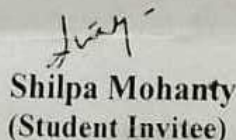 Shilpa Mohanty
(Student Invitee)